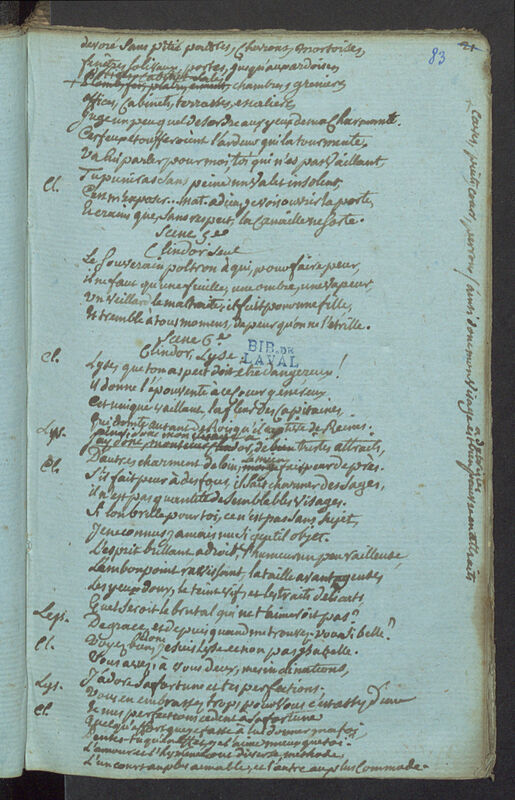 83
devoré sans pitié poutres, chevrons, montoiles,
fenêtres soliveaux, portes, jusqu'aux ardoises
chambres greniers
offices, cabinets, terrasses, escaliers
Juge un peu quel desordre aux yeux de ma charmante.
Ces feux etoufferoient l'ardeur qui la tourmente,
Va lui parler pour moi, toi qui n'es pas vaillant
Tu puniras sans peine un valet insolent,
Cl. C'est m'exposer... Mat. adieu, je vois ouvrir la porte,
Et crains que, sans respect, la canaille ne sorte.
Scene 5.e
Clindor seul
Le souverain poltron à qui, pour faire peur,
il ne faut qu'une feuille, une ombre, une vapeur,
Un vieillard le maltraite, il fuit pour une fille,
Et tremble à tous momens, de peur qu'on ne l'étrille.
Scene 6.e
Clindor, Lyse
BIB. DE
LAVAL
Cl. Lyse, que ton aspect doit être dangereux!
il donne l'épouvente à ce cœur genereux.
Cet unique vaillant, la fleur des Capitaines.
Qui dompte autant de Rois qu'il captive de Reines.
Lys. de bien tristes attraits,
D'autres charment de loin, le mien fait peur de près.
Cl. S'il fait peur à des fous, il sait charmer des sages,
il n'est pas quantité de semblables visages.
Si l'on brille pour toi, ce n'est pas sans sujet,
Je ne connus jamais un si gentil objet.
L'esprit brillant adroit l'humeur un peu railleuse,
L'embonpoint ravissant, la taille avantageuse
Les yeux doux, le teint vif, et les traits delicats
Quel seroit le brutal qui ne t'aimeroit pas?
Lys. De grace, et depuis quand me trouvez-vous si belle?
Cl. Voyez bien, je suis Lyse et non pas Isabelle.
Vous avez à vous deux, mes inclinations,
J'adore sa fortune et tes perfections.
Lys. Vous en embrassez trop, pour vous c'est assez d'une
Cl. Et mes perfections cedent à sa fortune
Quelqu'effort que je fasse à lui donner ma foi,
Penses-tu qu'en effet je l'aime mieux que toi.
L'amour et l'hymenée ont diverse methode.
L'un court au plus aimable, et l'autre au plus commode.
ainsi donc mon visage